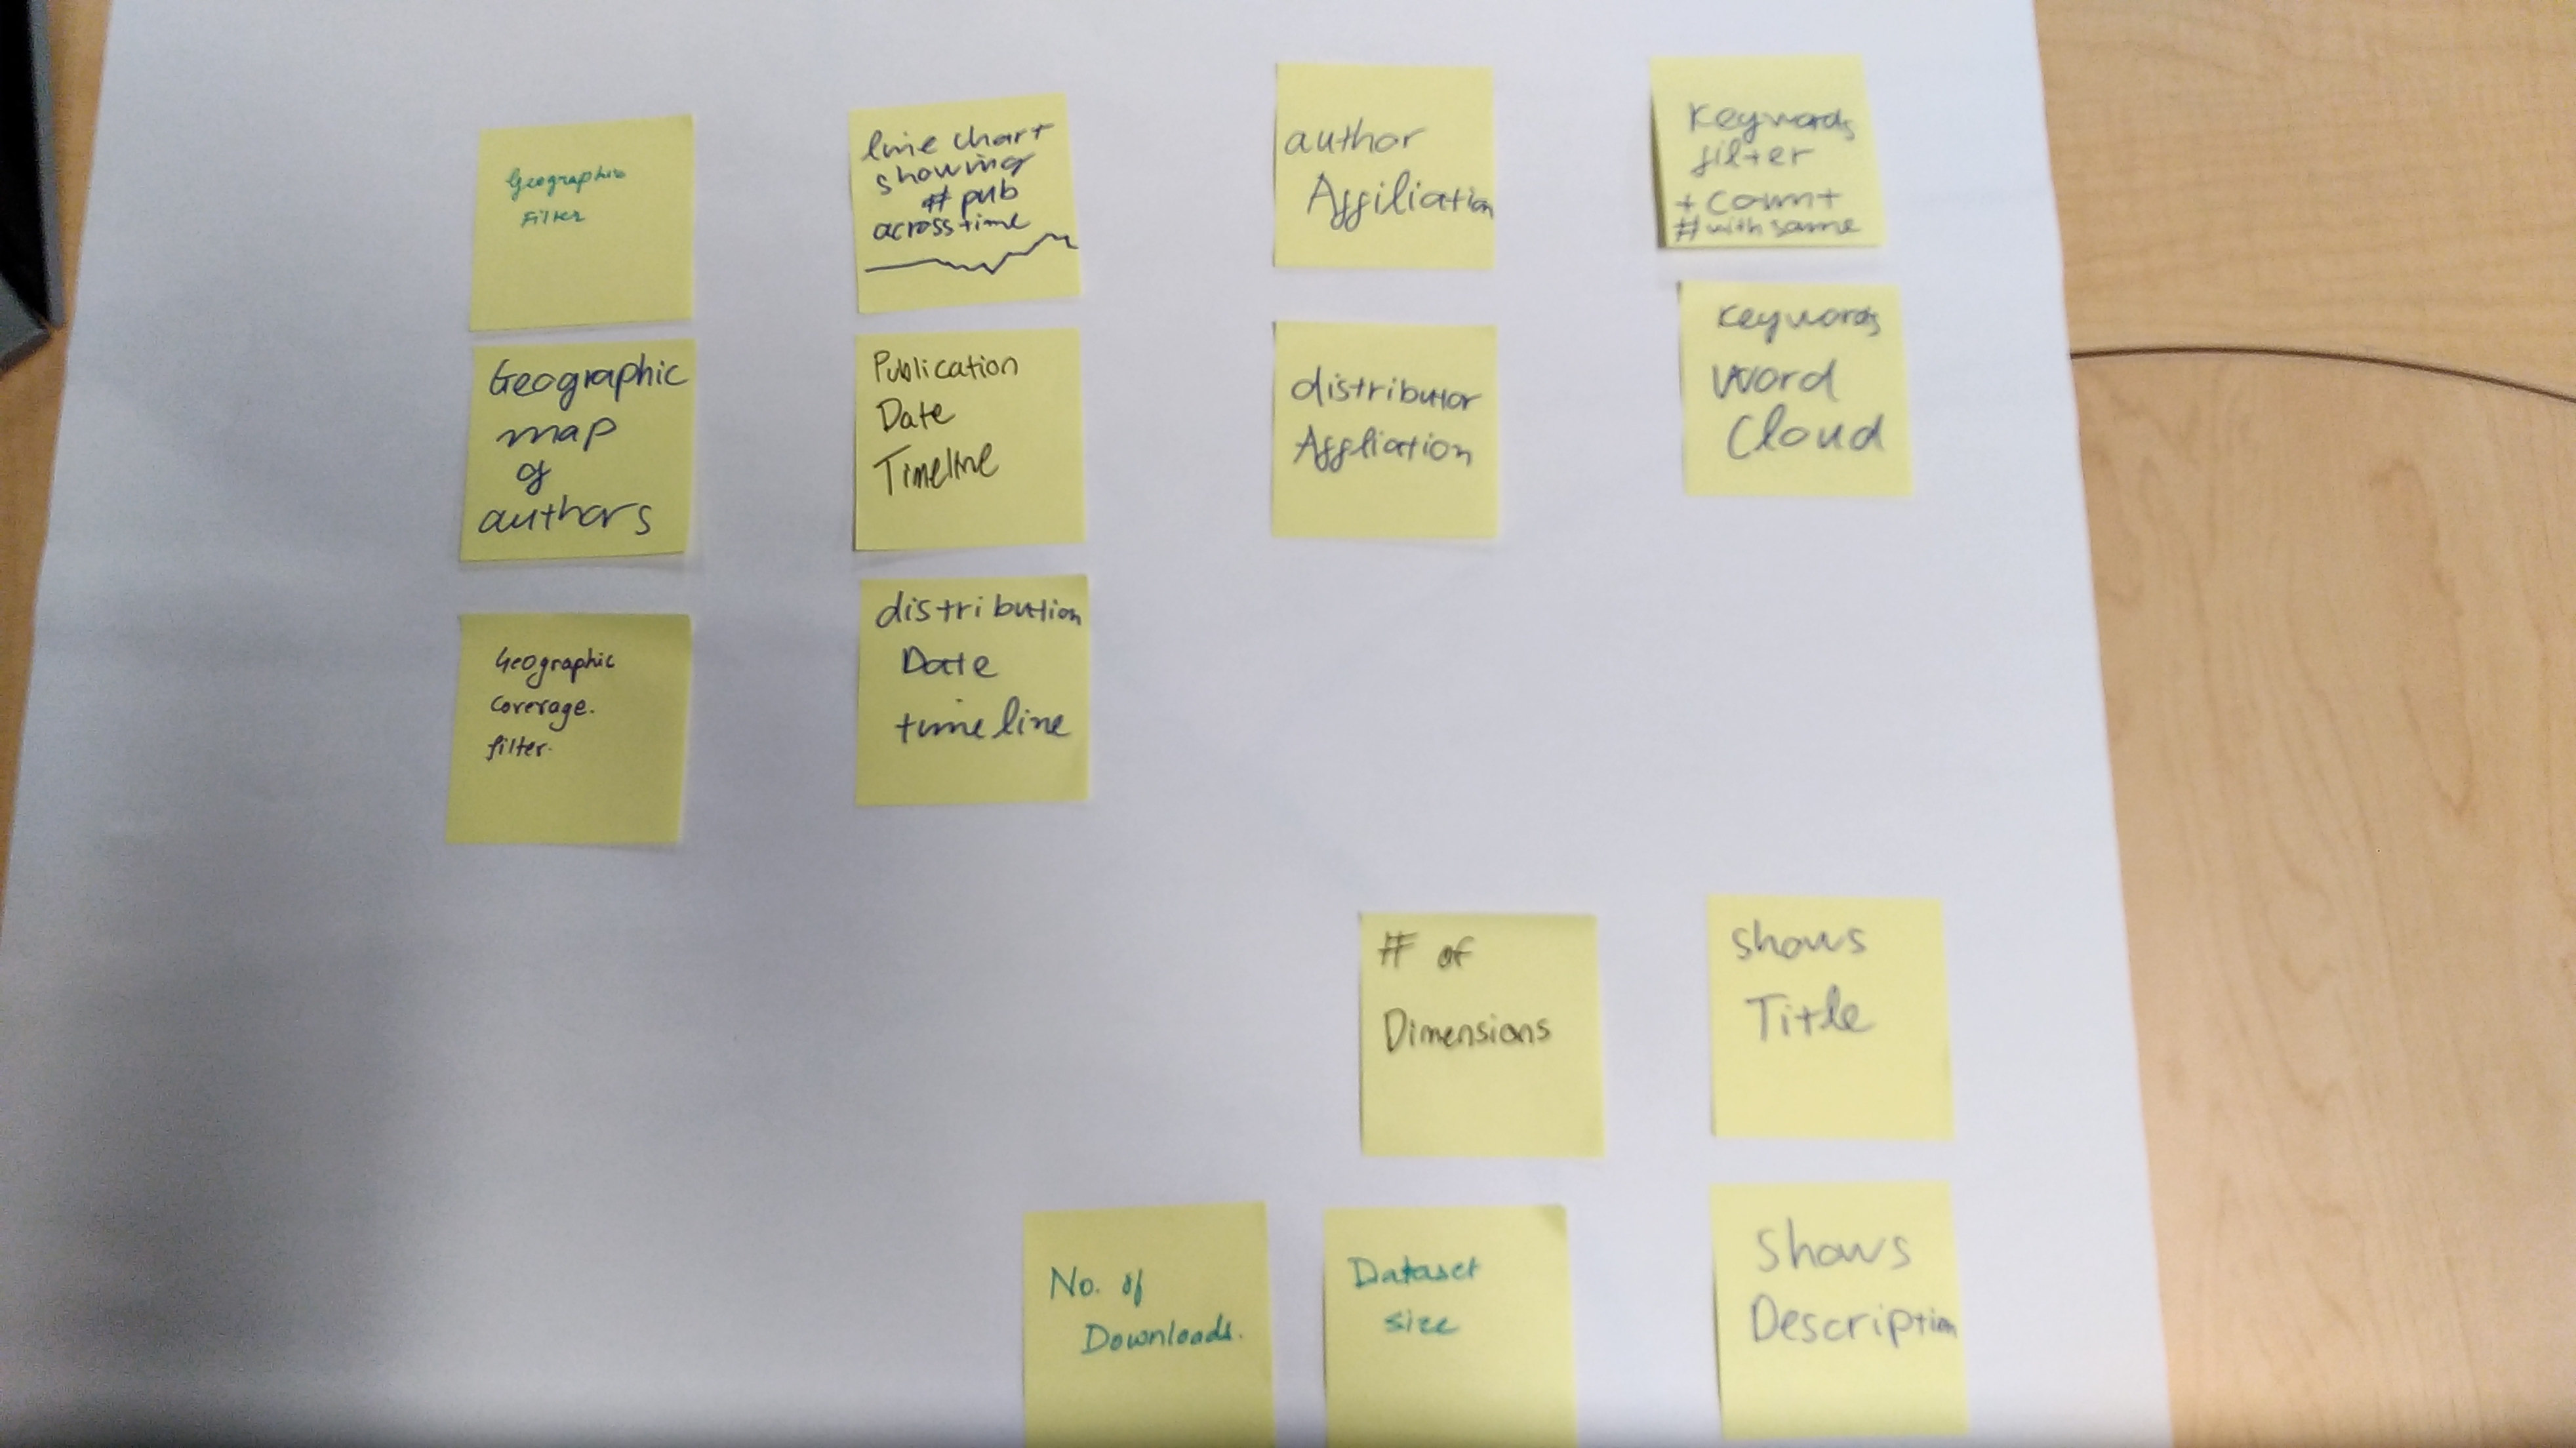 Geographic
Filter
Geographic
map
of
authors
Geographic
coverage.
filter.
line chart
showing
# pub
across time
Publication
Date
Timeline
distribution
Date
timeline
author
Affiliation
distributor
Affliation
Keywords
filter
+ count
# with same
Keywords
Word
Cloud
# of
Dimensions
shows
Title
No. of
Downloads.
Dataset
size
Shows
Description